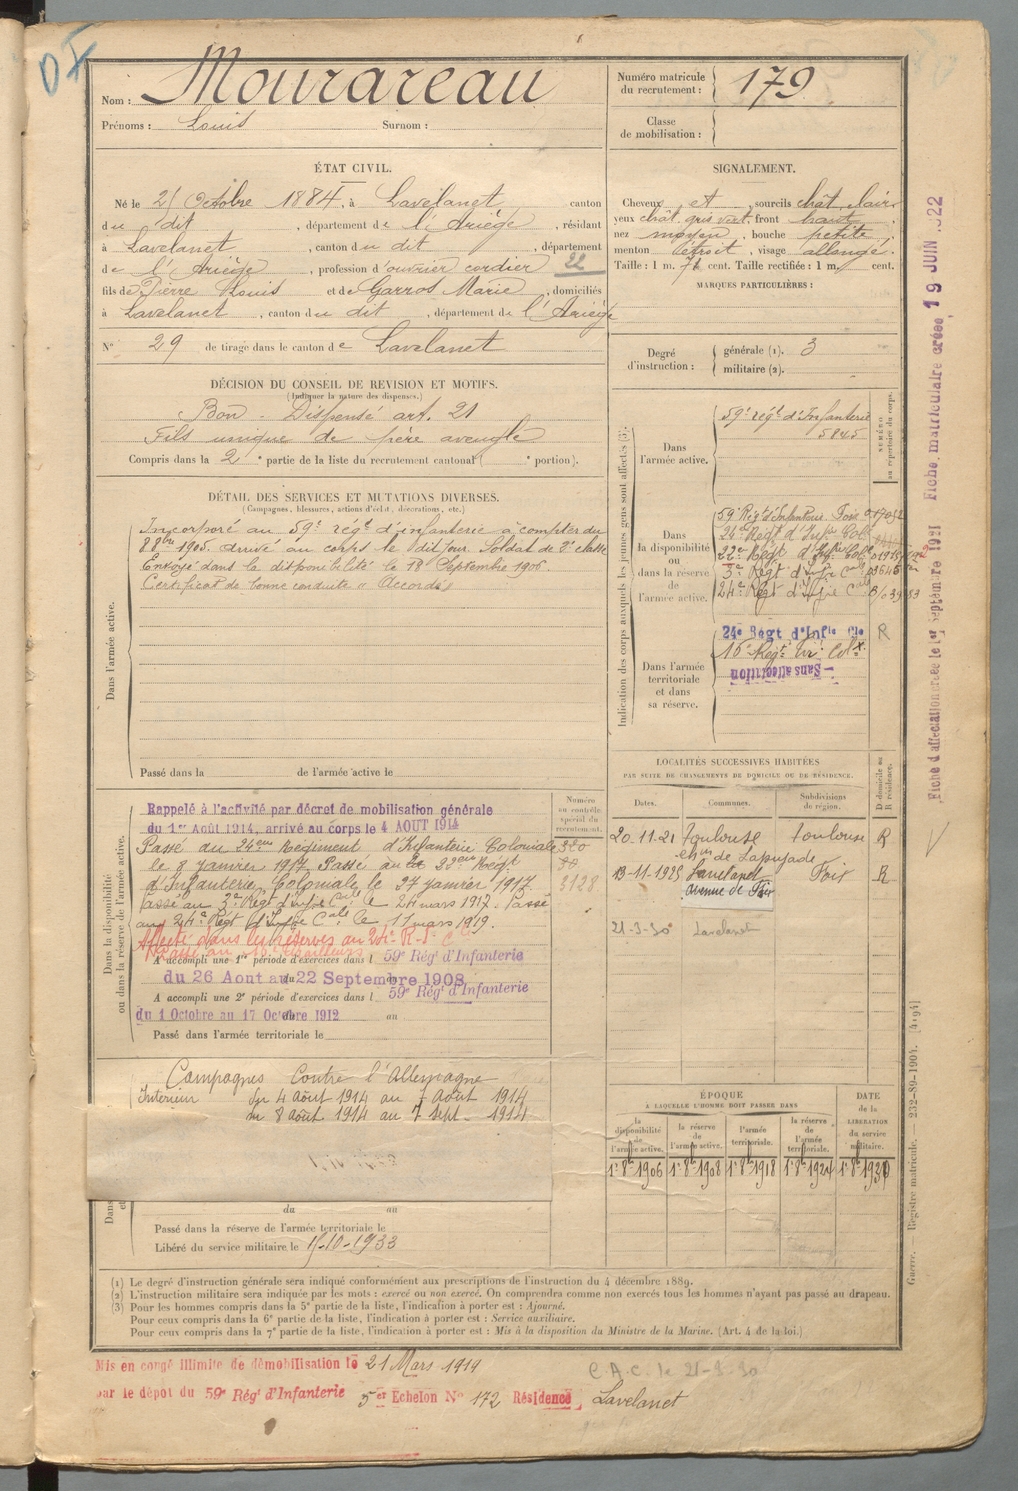 Nom : Mourareau
Prénoms : Louis Surnom :
Numéro matricule du recrutement : 179
Classe de mobilisation :
ÉTAT CIVIL.
Né le 21 Octobre 1884, à Lavelanet canton
du dit, département de l'Ariège, résidant
à Lavelanet, canton du dit, département
de l'Ariège, profession d'ouvrier cordier 22
fils de Pierre Louis et de Garros Marie, domiciliés
à Lavelanet, canton du dit, département de l'Ariège
N° 29 de tirage dans le canton de Lavelanet
SIGNALEMENT.
Cheveux et, sourcils chât. clairs
yeux chât. gris vert, front haut,
nez moyen, bouche petite,
menton étroit, visage allongé.
Taille : 1 m. 71 cent. Taille rectifiée : 1 m. cent.
MARQUES PARTICULIÈRES :
Degré d'instruction : générale (1). 3
militaire (2).
DÉCISION DU CONSEIL DE REVISION ET MOTIFS.
(Indiquer la nature des dispenses.)
Bon - Dispensé art. 21
Fils unique de père aveugle
Compris dans la 2e partie de la liste du recrutement cantonal ( e portion).
DÉTAIL DES SERVICES ET MUTATIONS DIVERSES.
(Campagnes, blessures, actions d'éclat, décorations, etc.)
Dans l'armée active.
Incorporé au 59e régt d'infanterie à compter du
8 8bre 1905. arrivé au corps le dit jour. Soldat de 2e classe
Envoyé dans la disponibilité le 18 Septembre 1906.
Certificat de bonne conduite "Accordé"
Passé dans la de l'armée active le
Indication des corps auxquels les jeunes gens sont affectés (3).
NUMÉRO au répertoire du corps.
Dans l'armée active.
59e régt d'Infanterie
5845
Dans la disponibilité ou dans la réserve de l'armée active.
59e Régt d'Infanterie Foix
24e Régt d'Infie Cole
22e Régt d'Infie Cole
3e Régt d'Infie Cale
24e Régt d'Infie Cale
Dans l'armée territoriale et dans sa réserve.
24e Régt d'Infie Cle R
16e Régt Tir. Colx
Sans affectation
Dans la disponibilité ou dans la réserve de l'armée active.
Numéro au contrôle spécial du recrutement.
Rappelé à l'activité par décret de mobilisation générale
du 1er Août 1914, arrivé au corps le 4 AOUT 1914
Passé au 24eme Régiment d'Infanterie Coloniale
le 8 janvier 1917. Passé au 22eme Régt
d'Infanterie Coloniale le 27 janvier 1917. 3128
Passé au 3e Régt d'Infie Cale le 24 mars 1917. Passé
au 24e Régt d'Infie Cale le 11 mars 1919.
Affecté dans les réserves au 24e R. I. C.
Passé au 16e Tirailleurs
A accompli une 1re période d'exercices dans l 59e Régt d'Infanterie
du 26 Aout au 22 Septembre 1908
A accompli une 2e période d'exercices dans l 59e Régt d'Infanterie
du 1 Octobre au 17 Octobre 1912 au
Passé dans l'armée territoriale le
LOCALITÉS SUCCESSIVES HABITÉES
PAR SUITE DE CHANGEMENTS DE DOMICILE OU DE RÉSIDENCE.
Dates. Communes. Subdivisions de région. D domicile ou R résidence.
20.11.21 Toulouse Toulouse R
chin de Lapujade
13-11-1925 Lavelanet Foix R
avenue de Foix
21-3-30 Lavelanet
Campagnes Contre l'Allemagne
Intérieur du 4 août 1914 au 7 août 1914
du 8 août 1914 au 7 sept. 1914
du au
Passé dans la réserve de l'armée territoriale le
Libéré du service militaire le 15-10-1933
ÉPOQUE
À LAQUELLE L'HOMME DOIT PASSER DANS
DATE de la LIBÉRATION du service militaire.
la disponibilité de l'armée active. la réserve de l'armée active. l'armée territoriale. la réserve de l'armée territoriale.
1er 8bre 1906 1er 8bre 1908 1er 8bre 1918 1er 8bre 1924 1er 8bre 1930
(1) Le degré d'instruction générale sera indiqué conformément aux prescriptions de l'instruction du 4 décembre 1889.
(2) L'instruction militaire sera indiquée par les mots : exercé ou non exercé. On comprendra comme non exercés tous les hommes n'ayant pas passé au drapeau.
(3) Pour les hommes compris dans la 5e partie de la liste, l'indication à porter est : Ajourné.
Pour ceux compris dans la 6e partie de la liste, l'indication à porter est : Service auxiliaire.
Pour ceux compris dans la 7e partie de la liste, l'indication à porter est : Mis à la disposition du Ministre de la Marine. (Art. 4 de la loi.)
Mis en congé illimité de démobilisation le 21 Mars 1919
par le dépôt du 59e Régt d'Infanterie 5er Echelon N° 172 Résidence, Lavelanet
C.A.C. le 21-3-30
Fiche d'affectation créée le 1er septembre 1921 Fiche matriculaire créée 19 JUIN 1922
Guerre. — Registre matricule. — 232-89-1904. [4194]